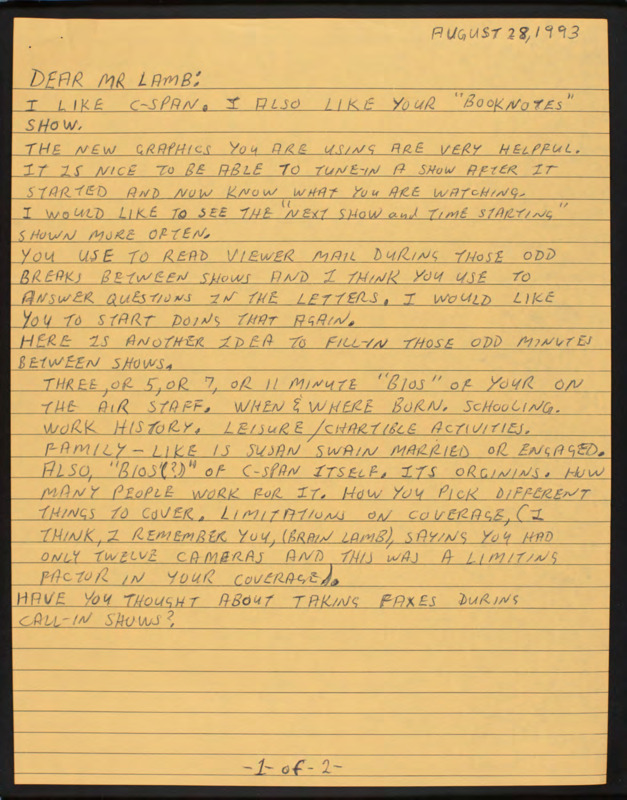 AUGUST 28, 1993
DEAR MR LAMB:
I LIKE C-SPAN. I ALSO LIKE YOUR "BOOKNOTES"
SHOW.
THE NEW GRAPHICS YOU ARE USING ARE VERY HELPFUL.
IT IS NICE TO BE ABLE TO TUNE-IN A SHOW AFTER IT
STARTED AND NOW KNOW WHAT YOU ARE WATCHING.
I WOULD LIKE TO SEE THE "NEXT SHOW and TIME STARTING"
SHOWN MORE OFTEN.
YOU USE TO READ VIEWER MAIL DURING THOSE ODD
BREAKS BETWEEN SHOWS AND I THINK YOU USE TO
ANSWER QUESTIONS IN THE LETTERS. I WOULD LIKE
YOU TO START DOING THAT AGAIN.
HERE IS ANOTHER IDEA TO FILL-IN THOSE ODD MINUTES
BETWEEN SHOWS.
THREE, OR 5, OR 7, OR 11 MINUTE "BIOS" OF YOUR ON
THE AIR STAFF. WHEN & WHERE BORN. SCHOOLING.
WORK HISTORY. LEISURE/CHARTIBLE ACTIVITIES.
FAMILY - LIKE IS SUSAN SWAIN MARRIED OR ENGAGED.
ALSO, "BIOS(?)" OF C-SPAN ITSELF. ITS ORGININS. HOW
MANY PEOPLE WORK FOR IT. HOW YOU PICK DIFFERENT
THINGS TO COVER. LIMITATIONS ON COVERAGE, (I
THINK, I REMEMBER YOU, (BRAIN LAMB), SAYING YOU HAD
ONLY TWELVE CAMERAS AND THIS WAS A LIMITING
FACTOR IN YOUR COVERAGE).
HAVE YOU THOUGHT ABOUT TAKING FAXES DURING
CALL-IN SHOWS?
-1- of -2-